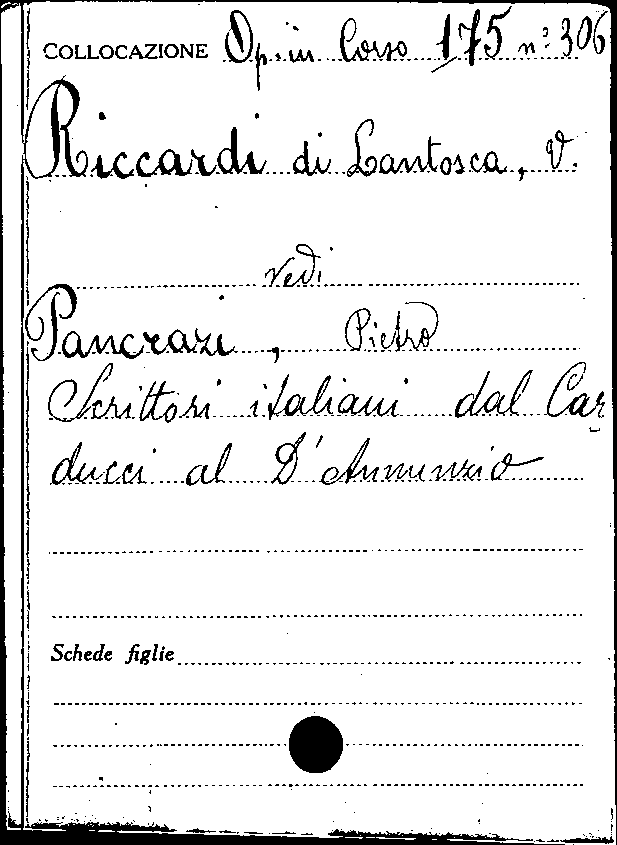 COLLOCAZIONE Op. in Corso 175 n: 306
Riccardi di Lantosca, V.
vedi
Pancrazi, Pietro
Scrittori italiani dal Car
ducci al D'Annunzio
Schede figlie